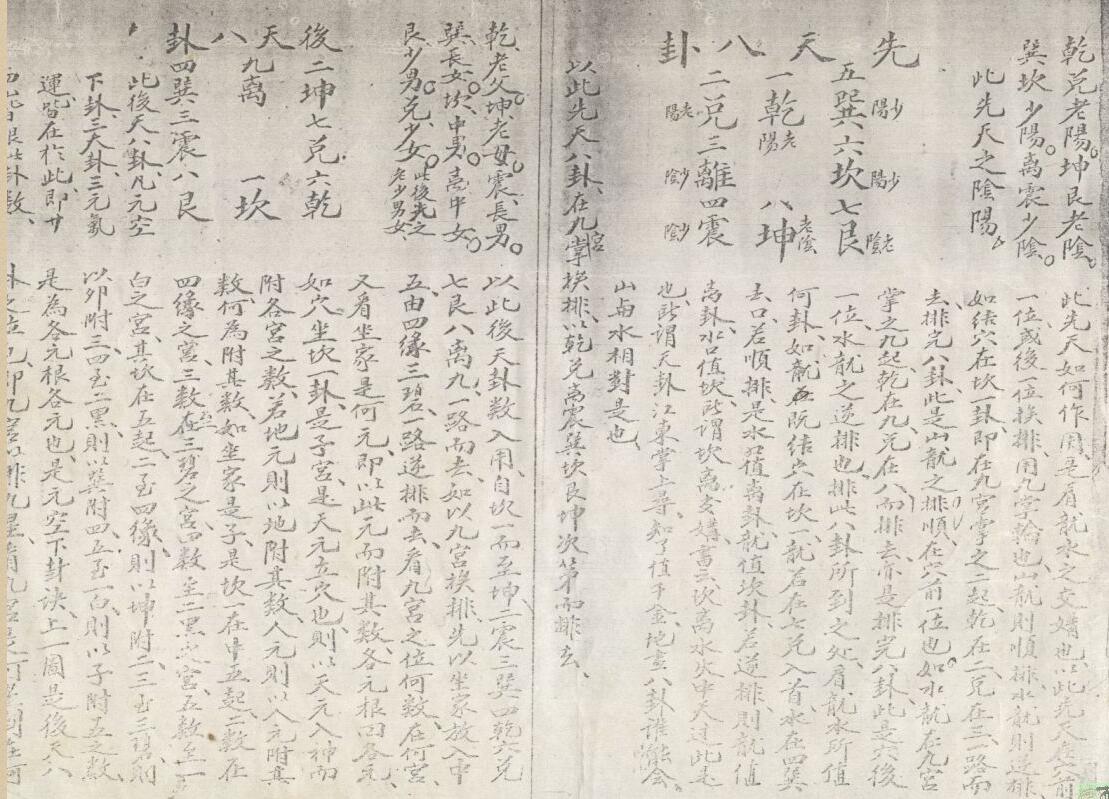 乾兌老陽坤艮老陰
巽坎少陽離震少陰
此先天之陰陽
先天八卦
少陽 少陽 老陰
五巽六坎七艮
一乾老陽 八坤老陰
二兌三離四震
老陽 少陰 少陰
此先天如何作用是看龍水之交媾也以此先天在穴前
一位或後一位挨排用九掌輪也山龍則順排水龍則逆排
如結穴在坎一卦即在九宮掌之二起乾在二兌在三一路而
去排完八卦此是山龍之排順在穴前一位也如水龍在九宮
掌之九起乾在九兌在八而排去亦是排完八卦此是穴後
一位水龍之逆排也排此八卦所到之处看龍水所值
何卦如龍既結穴在坎一龍若在七兌入首水在四巽
去口若順排是水口值离卦龍值坎卦若逆排則龍值
离卦水口值坎所謂坎离交媾書云坎离水火中天过此是
也所謂天卦江東掌上尋知了值千金地畫八卦誰能會
山與水相對是也
以此先天八卦在九宮掌挨排以乾兌离震巽坎艮坤次第而排去
乾老父坤老母震長男
巽長女坎中男离中女
艮少男兌少女此後天之老少男女
後天八卦
二坤七兌六乾
九离 一坎
四巽三震八艮
此後天八卦凡元空
下卦三大卦三元氣
運皆在於此即廿
以此後天卦数入用自坎一而至坤二震三巽四乾六兌
七艮八离九一路而去如以九宮挨排先以坐家放入中
五由四緣三碧一路逆排而去看九宮之位何数在何宮
又看坐家是何元即以此元而附其数各元根曰各元
如穴坐坎一卦是子宮是天元立穴也則以天元入神而
附各宮之数若地元則以地附其数人元則以人元附其
数何為附其数如坐家是子是坎一在中五起二数在
四緣之宮三数在三碧之宮四数至二黑之宮五数至一
白之宮其坎在五起二至四緣則以坤附二三至三碧則
以卯附三四至二黑則以巽附四五至一白則以子附五之数
是為各元根各元也是元空下卦訣上一圖是後天八